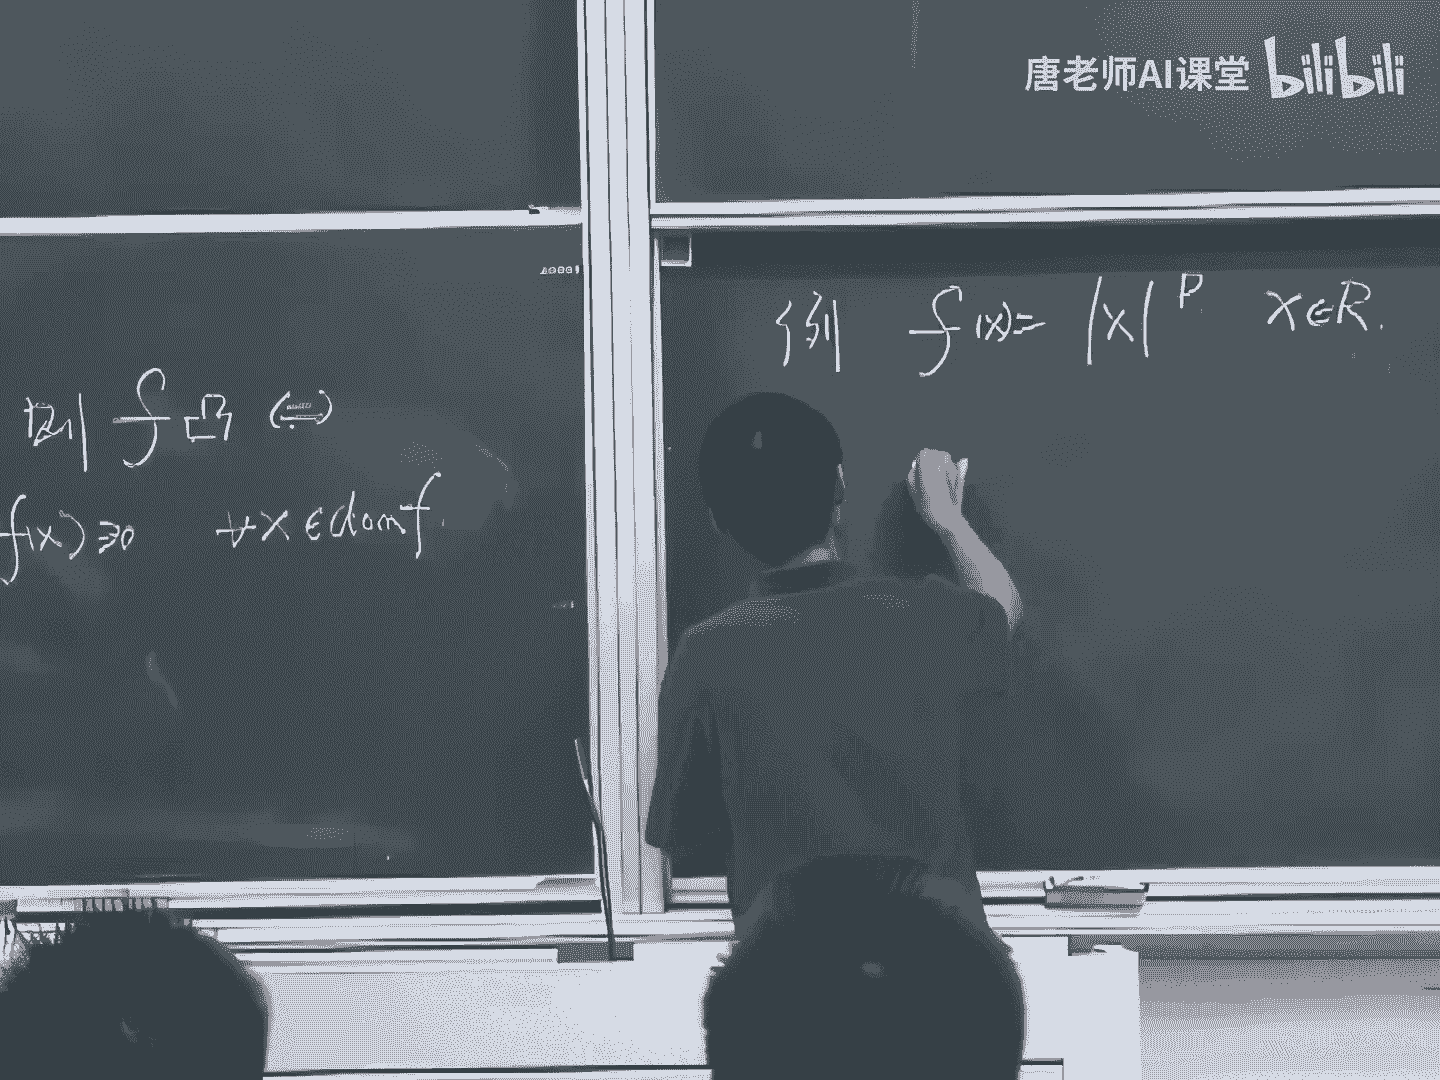 唐老师AI课堂 bilibili
则 f 凸 (⇔)
f(x) ≥0 ∀x∈domf.
例 f(x)= |x|^p x∈R.